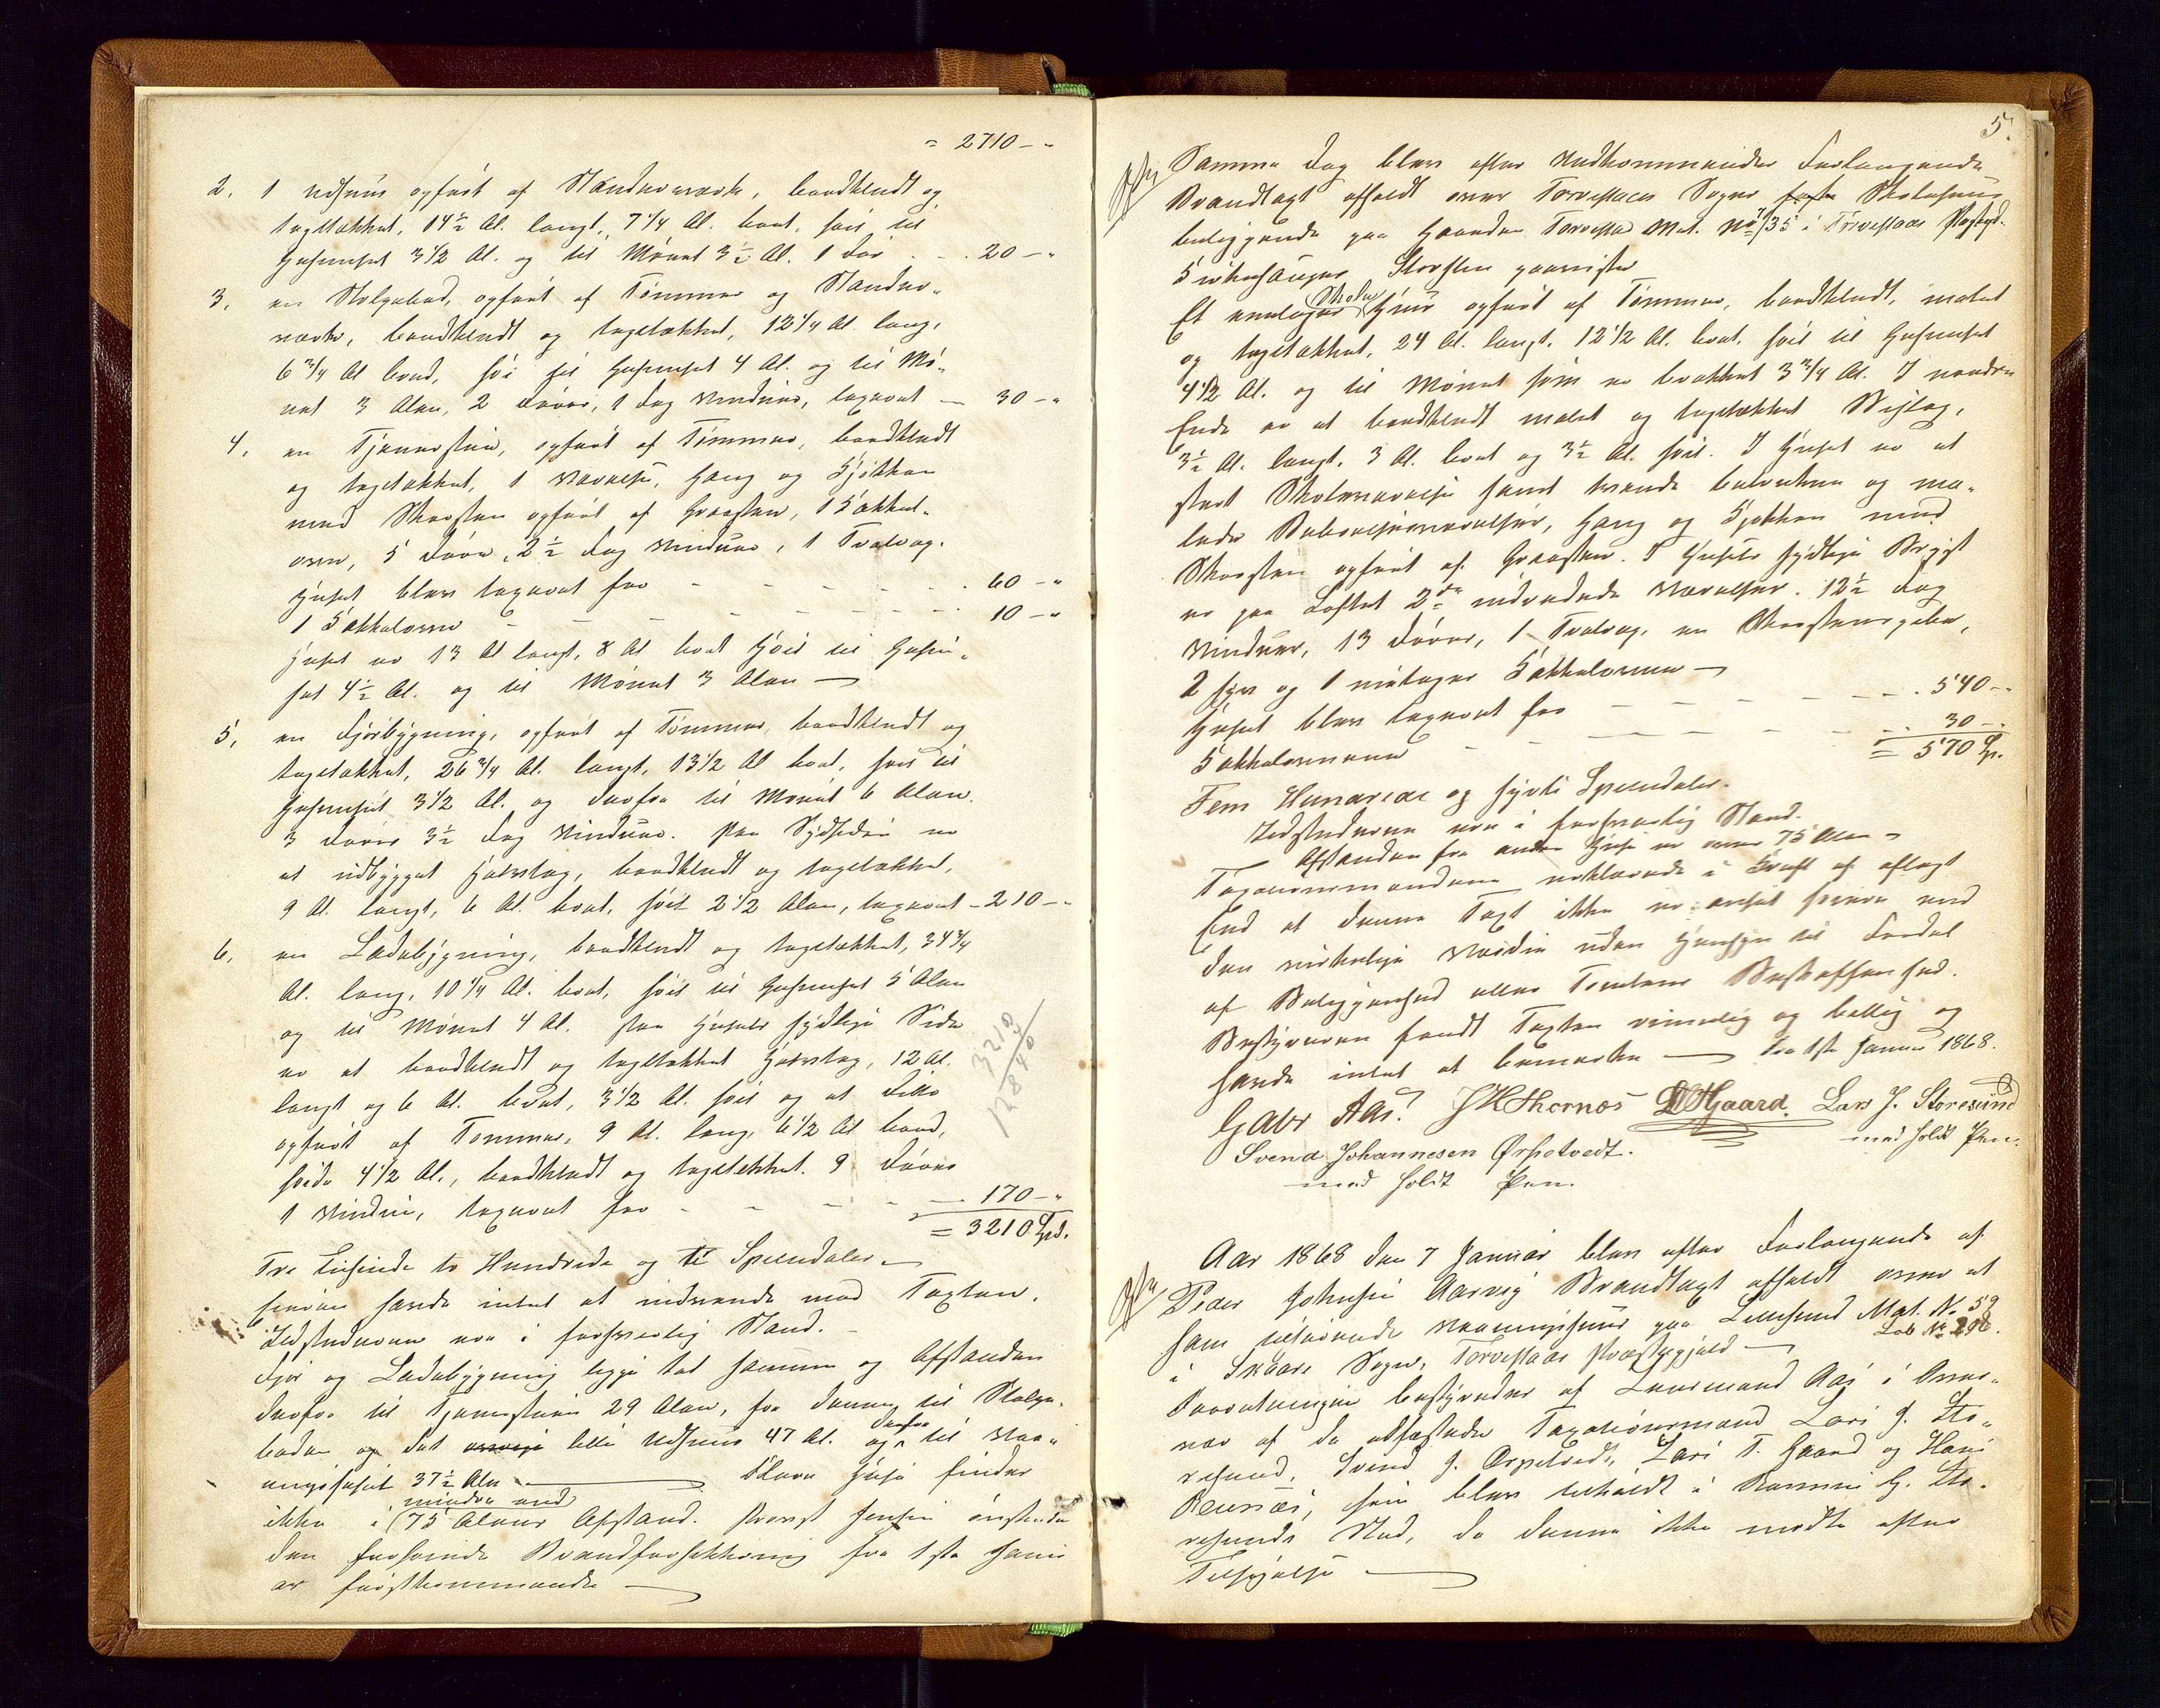 = 2710 - "
2. 1 Udhuus opført af Standerværk, bordklædt og
tagtækket, 14½ Al. langt, 7 1/4 Al. bredt, høit til
Gesimset 3 1/2 Al. og til Mønet 3½ Al. 1 Dør - - 20 - "
3. en Stolpebod, opført af Tømmer og Stander-
værk, bordklædt og tagtækket, 12 1/4 Al. lang,
6 3/4 Al bred, høi til Gesimset 4 Al. og til Mø-
net 3 Alen, 2 Døre, 1 Fag Vinduer, taxeret - 30 - "
4. en Tjenerstue, opført af Tømmer, bordklædt
og tagtækket, 1 Værelse, Gang og Kjøkken
med Skorsten opført af Graasten, 1 Kakkel-
ovn, 5 Døre, 2½ Fag Vinduer, 1 Tralværk.
Huset blev taxeret for - - - - - 60 - "
1 Kakkelovn - - - - - - 10 - "
Huset er 13 Al langt, 8 Al bredt høit til Gesim-
set 4½ Al. og til Mønet 3 Alen —
5. en Fjøsbygning, opført af Tømmer, bordklædt og
tagtækket, 26 3/4 Al. langt, 13 1/2 Al bredt, høit til
Gesimset 3 1/2 Al. og derfra til Mønet 6 Alen.
3 Døre 3½ Fag Vinduer. Paa Sydsiden er
et udbygget Halvtag, bordklædt og tagtækket,
9 Al. langt, 6 Al. bredt, høit 2 1/2 Alen, taxeret - 210 - "
6. en Ladebygning, bordklædt og tagtækket, 34 3/4
Al. lang, 10 1/4 Al. bredt, høit til Gesimset 5 Alen
og til Mønet 4 Al. Paa Husets sydlige Side
er et bordklædt og tagtækket Halvtag, 12 Al.
langt og 6 Al. bredt, 3 1/2 Al. høit og et Ditto
opført af Tømmer, 9 Al. lang, 6 1/2 Al bred,
høide 4 1/2 Al., bordklædt og tagtækket. 9 Døre
1 Vindue, taxeret for - - - - 170 - "
= 3210 Spd.
3210
4
12840
Tre Tusinde to Hundrede og ti Speciedaler -
havde intet at indvende mod Taxten.
Ildstederne var i forsvarlig Stand. -
Fjøs og Ladebygning ligge tæt sammen og Afstanden
derfra til Tjenerstuen 29 Alen, fra denne til Stolpe-
boden og det lille Udhuus 47 Al. og derfra til Vaa-
ningshuset 37½ Alen — Flere Huse findes
ikke i mindre end 75 Alens Afstand. Provst Jensen ønskede
den forhøiede Brandforsikkring fra 1ste Janu
ar førstkommende —
5.
Samme Dag blev efter Vedkommendes Forlangende
Brandtaxt afholdt over Torvestads Sogns Skolehuus
beliggende paa Gaarden Torvestad Mat. No 7/35 i Torvestads Præstegd.
Et eenlaget Skolehuus opført af Tømmer, bordklædt, malet
og tagtækket, 24 Al. langt, 12 1/2 Al. bredt, høit til Gesimset
4 1/2 Al. og til Mønet som er brækket 3 3/4 Al. I nordre
Ende er et bordklædt malet og tagtækket Bislag,
3½ Al. langt, 3 Al. bredt og 3½ Al. høit. I Huset er et
stort Skoleværelse samt tvende betrukne og ma-
lede Beboelsesværelser, Gang og Kjøkken med
Skorsten opført af Graasten. I Husets sydlige Bryst
er paa Loftet 2de indredede Værelser. 12½ Fag
Vinduer, 13 Døre, 1 Tralværk, en Skorstenspibe,
2 fyr og 1 eenetages Kakkelovne —
Huset blev taxeret for - - - - - 540 - "
Kakkelovnene - - - - - - 30 - "
= 570 Sp.
Fem Hundrede og syvti Speciedaler.
Ildstederne var i forsvarlig Stand.
Afstanden fra andre Huse er over 75 Alen -
Taxationsmændene erklærede i Kraft af aflagt
Eed at denne Taxt ikke er ansat høiere end
den virkelige Værdie uden Hensyn til Fordel
af Beliggenhed eller Tomtens Beskaffenhed.
Bestyreren fandt Taxten rimelig og billig og
havde intet at bemærke — Fra 1ste Januar 1868.
G Aar Aas. JHThornæs LTGaard. Lars J. Storesund
Svend Johannesen Ørpetvedt. med holdt Pen.
med holdt Pen.
Aar 1868 den 7 Januar blev efter Forlangende af
Peder Johnsen Aarvig Brandtaxt afholdt over et
ham tilhørende Vaaningshuus paa Lillesund Mat. No 59
i Skaare Sogn, Torvestads Præstegjeld — Løb No 298.
Forretningen bestyredes af Lensmand Aas i Over-
vær af de edfæstede Taxationsmænd Lars J. Sto-
resund, Svend J. Ørpetvedt, Lars T. Gaard og Hans
Reinæs, som blev tilkaldt i Rasmus G. Sto-
resunds Sted, da denne ikke mødte efter
Tilsigelse —